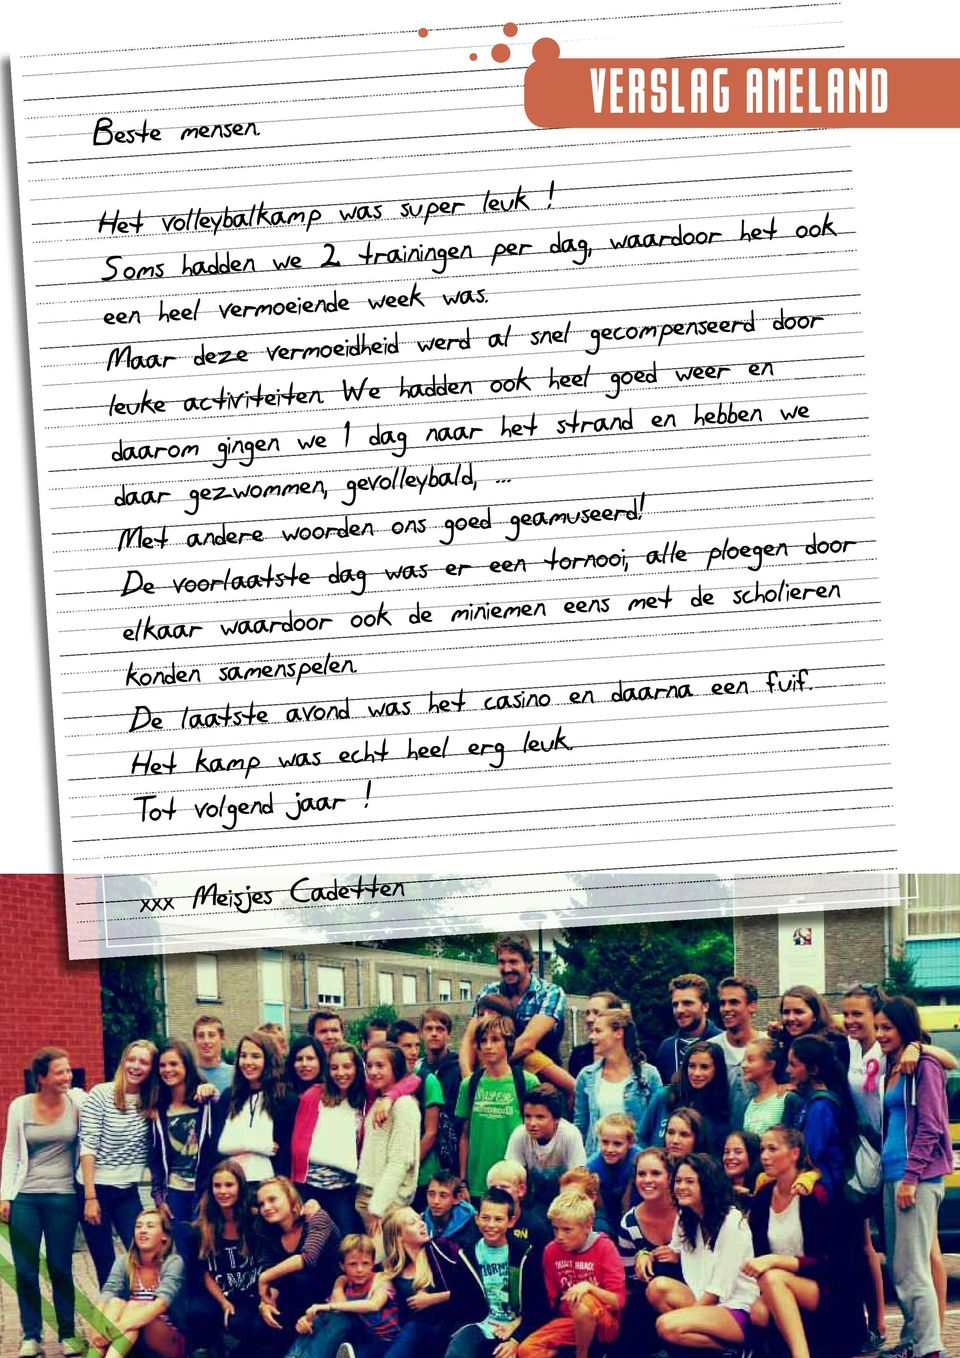 VERSLAG AMELAND
Beste mensen
Het volleybalkamp was super leuk !
Soms hadden we 2 trainingen per dag, waardoor het ook
een heel vermoeiende week was.
Maar deze vermoeidheid werd al snel gecompenseerd door
leuke activiteiten. We hadden ook heel goed weer en
daarom gingen we 1 dag naar het strand en hebben we
daar gezwommen, gevolleybald, ...
Met andere woorden ons goed geamuseerd!
De voorlaatste dag was er een tornooi, alle ploegen door
elkaar waardoor ook de miniemen eens met de scholieren
konden samenspelen.
De laatste avond was het casino en daarna een fuif.
Het kamp was echt heel erg leuk.
Tot volgend jaar !
xxx Meisjes Cadetten